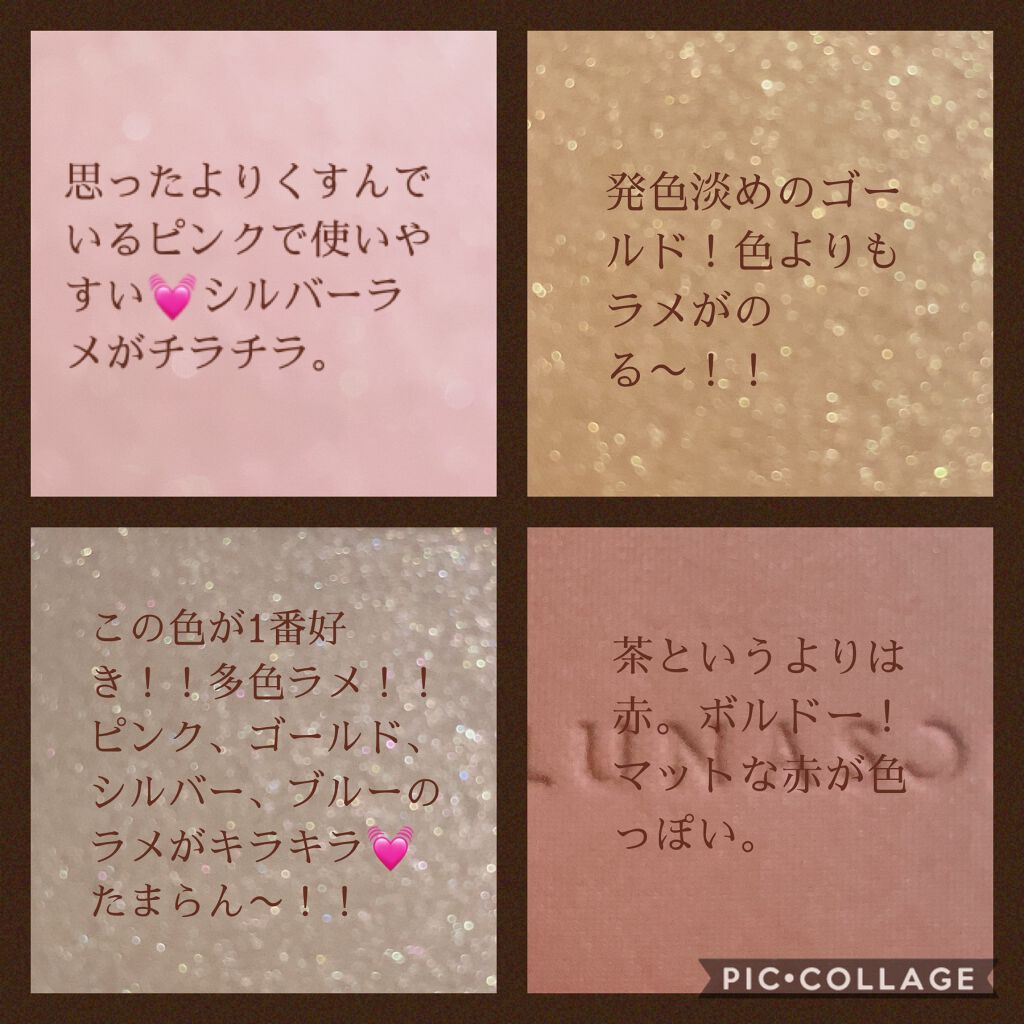 思ったよりくすんで
いるピンクで使いや
すい💓シルバーラ
メがチラチラ。
発色淡めのゴー
ルド！色よりも
ラメがの
る〜！！
この色が1番好
き！！多色ラメ！！
ピンク、ゴールド、
シルバー、ブルーの
ラメがキラキラ💓
たまらん〜！！
茶というよりは
赤。ボルドー！
マットな赤が色
っぽい。
LUNASO
PIC•COLLAGE